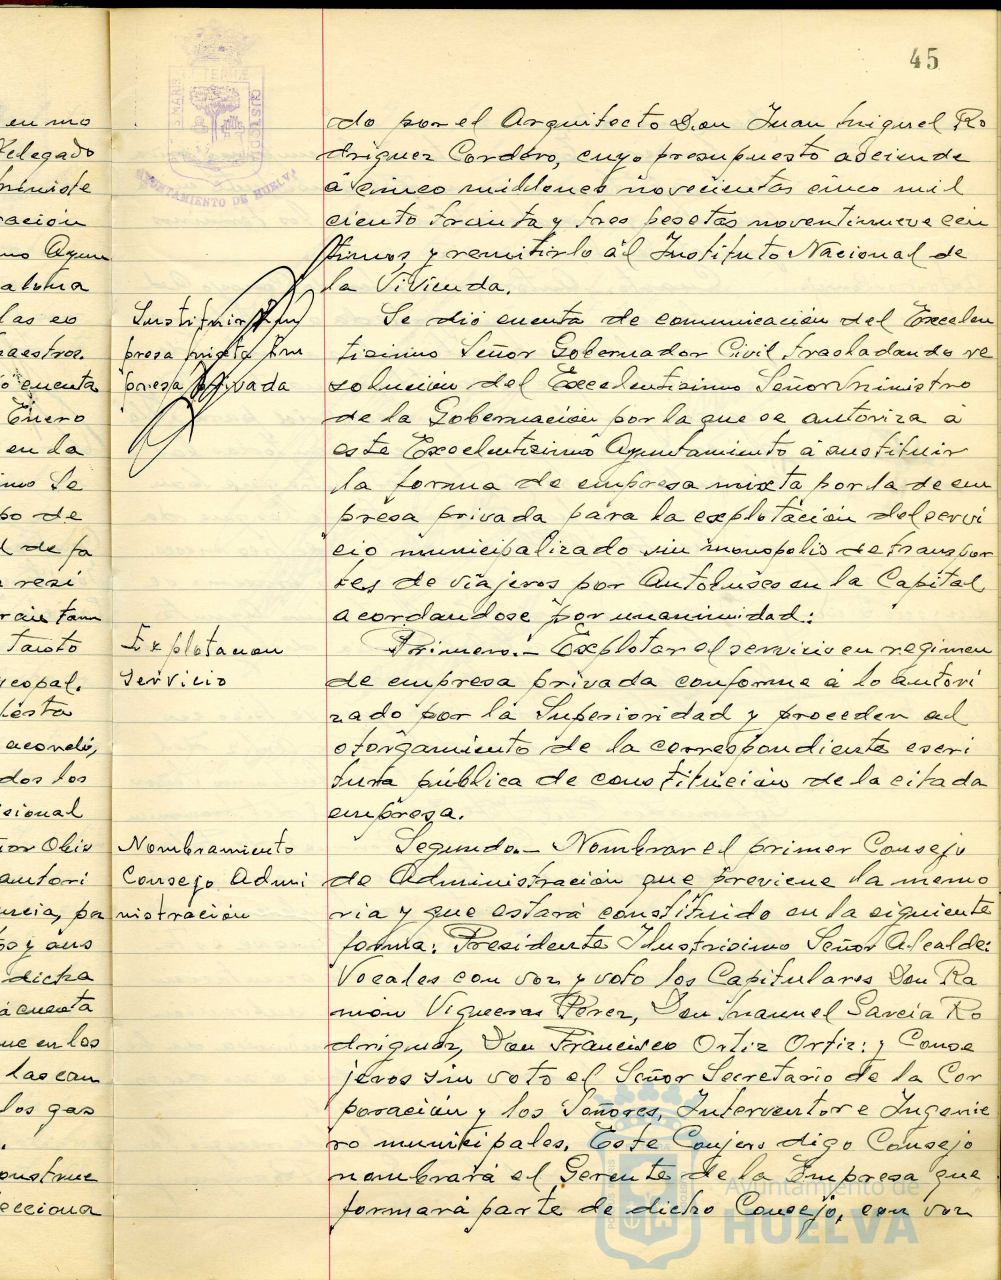 45
en mo
Delegado
ración
mo Ayun
las es
maestros.
cuenta
Enero
en la
imo Se
po de
d de fa
resi
tanto
copal.
acordó,
dos los
isional
ñor Obis
autori
pa
y aus
dicha
cuenta
ue en los
las can
los gas
onstruc
ecciona
MARIS TERRAE CUSTODIA
AYUNTAMIENTO DE HUELVA
Sustituir Em
presa mixta Em
presa privada
Explotacion
Servicio
Nombramiento
Consejo Admi
nistración
do por el Arquitecto Don Juan Miguel Ro
driguez Cordero, cuyo presupuesto asciende
á cinco millones novecientas cinco mil
ciento treinta y tres pesetas noventinueve cén
timos, y remitirlo ál Instituto Nacional de
la Vivienda.
Se dió cuenta de comunicación del Excelen
tisimo Señor Gobernador Civil trasladando re
solución del Excelentisimo Señor Ministro
de la Gobernación por la que se autoriza á
este Excelentisimo Ayuntamiento á sustituir
la forma de empresa mixta por la de em
presa privada para la explotación del servi
cio municipalizado sin monopolio de transpor
tes de viajeros por Autobuses en la Capital
acordandose por unanimidad:
Primero.- Explotar el servicio en regimen
de empresa privada conforme á lo autori
zado por la Superioridad y proceder al
otorgamiento de la correspondiente escri
tura pública de constitución de la citada
empresa.
Segundo.- Nombrar el primer Consejo
de Administración que previene la memo
ria y que estará constituido en la siguiente
forma: Presidente Ilustrisimo Señor Alcalde:
Vocales con voz y voto los Capitulares Don Ra
món Vigueras Perez, Don Manuel Garcia Ro
driguez, Don Francisco Ortiz Ortiz: y Conse
jeros sin voto el Señor Secretario de la Cor
poración y los Señores, Interventor e Ingenie
ro municipales. Este Conjero digo Consejo
nombrará el Gerente de la Empresa que
formará parte de dicho Consejo, con voz
Ayuntamiento de
HUELVA